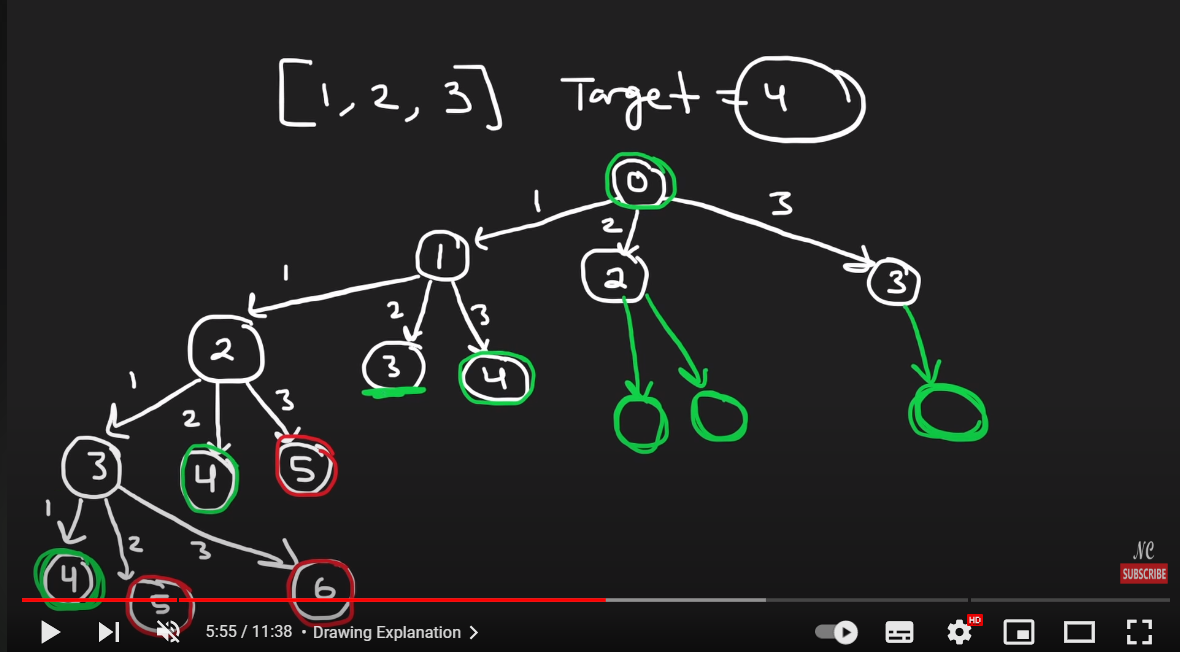 [1, 2, 3] Target = 4
0
1 2 3
1 2 3
1 2 3
2 3 4
1 2 3
3 4 5
1 2 3
4 5 6
NC
SUBSCRIBE
5:55 / 11:38 • Drawing Explanation >
HD